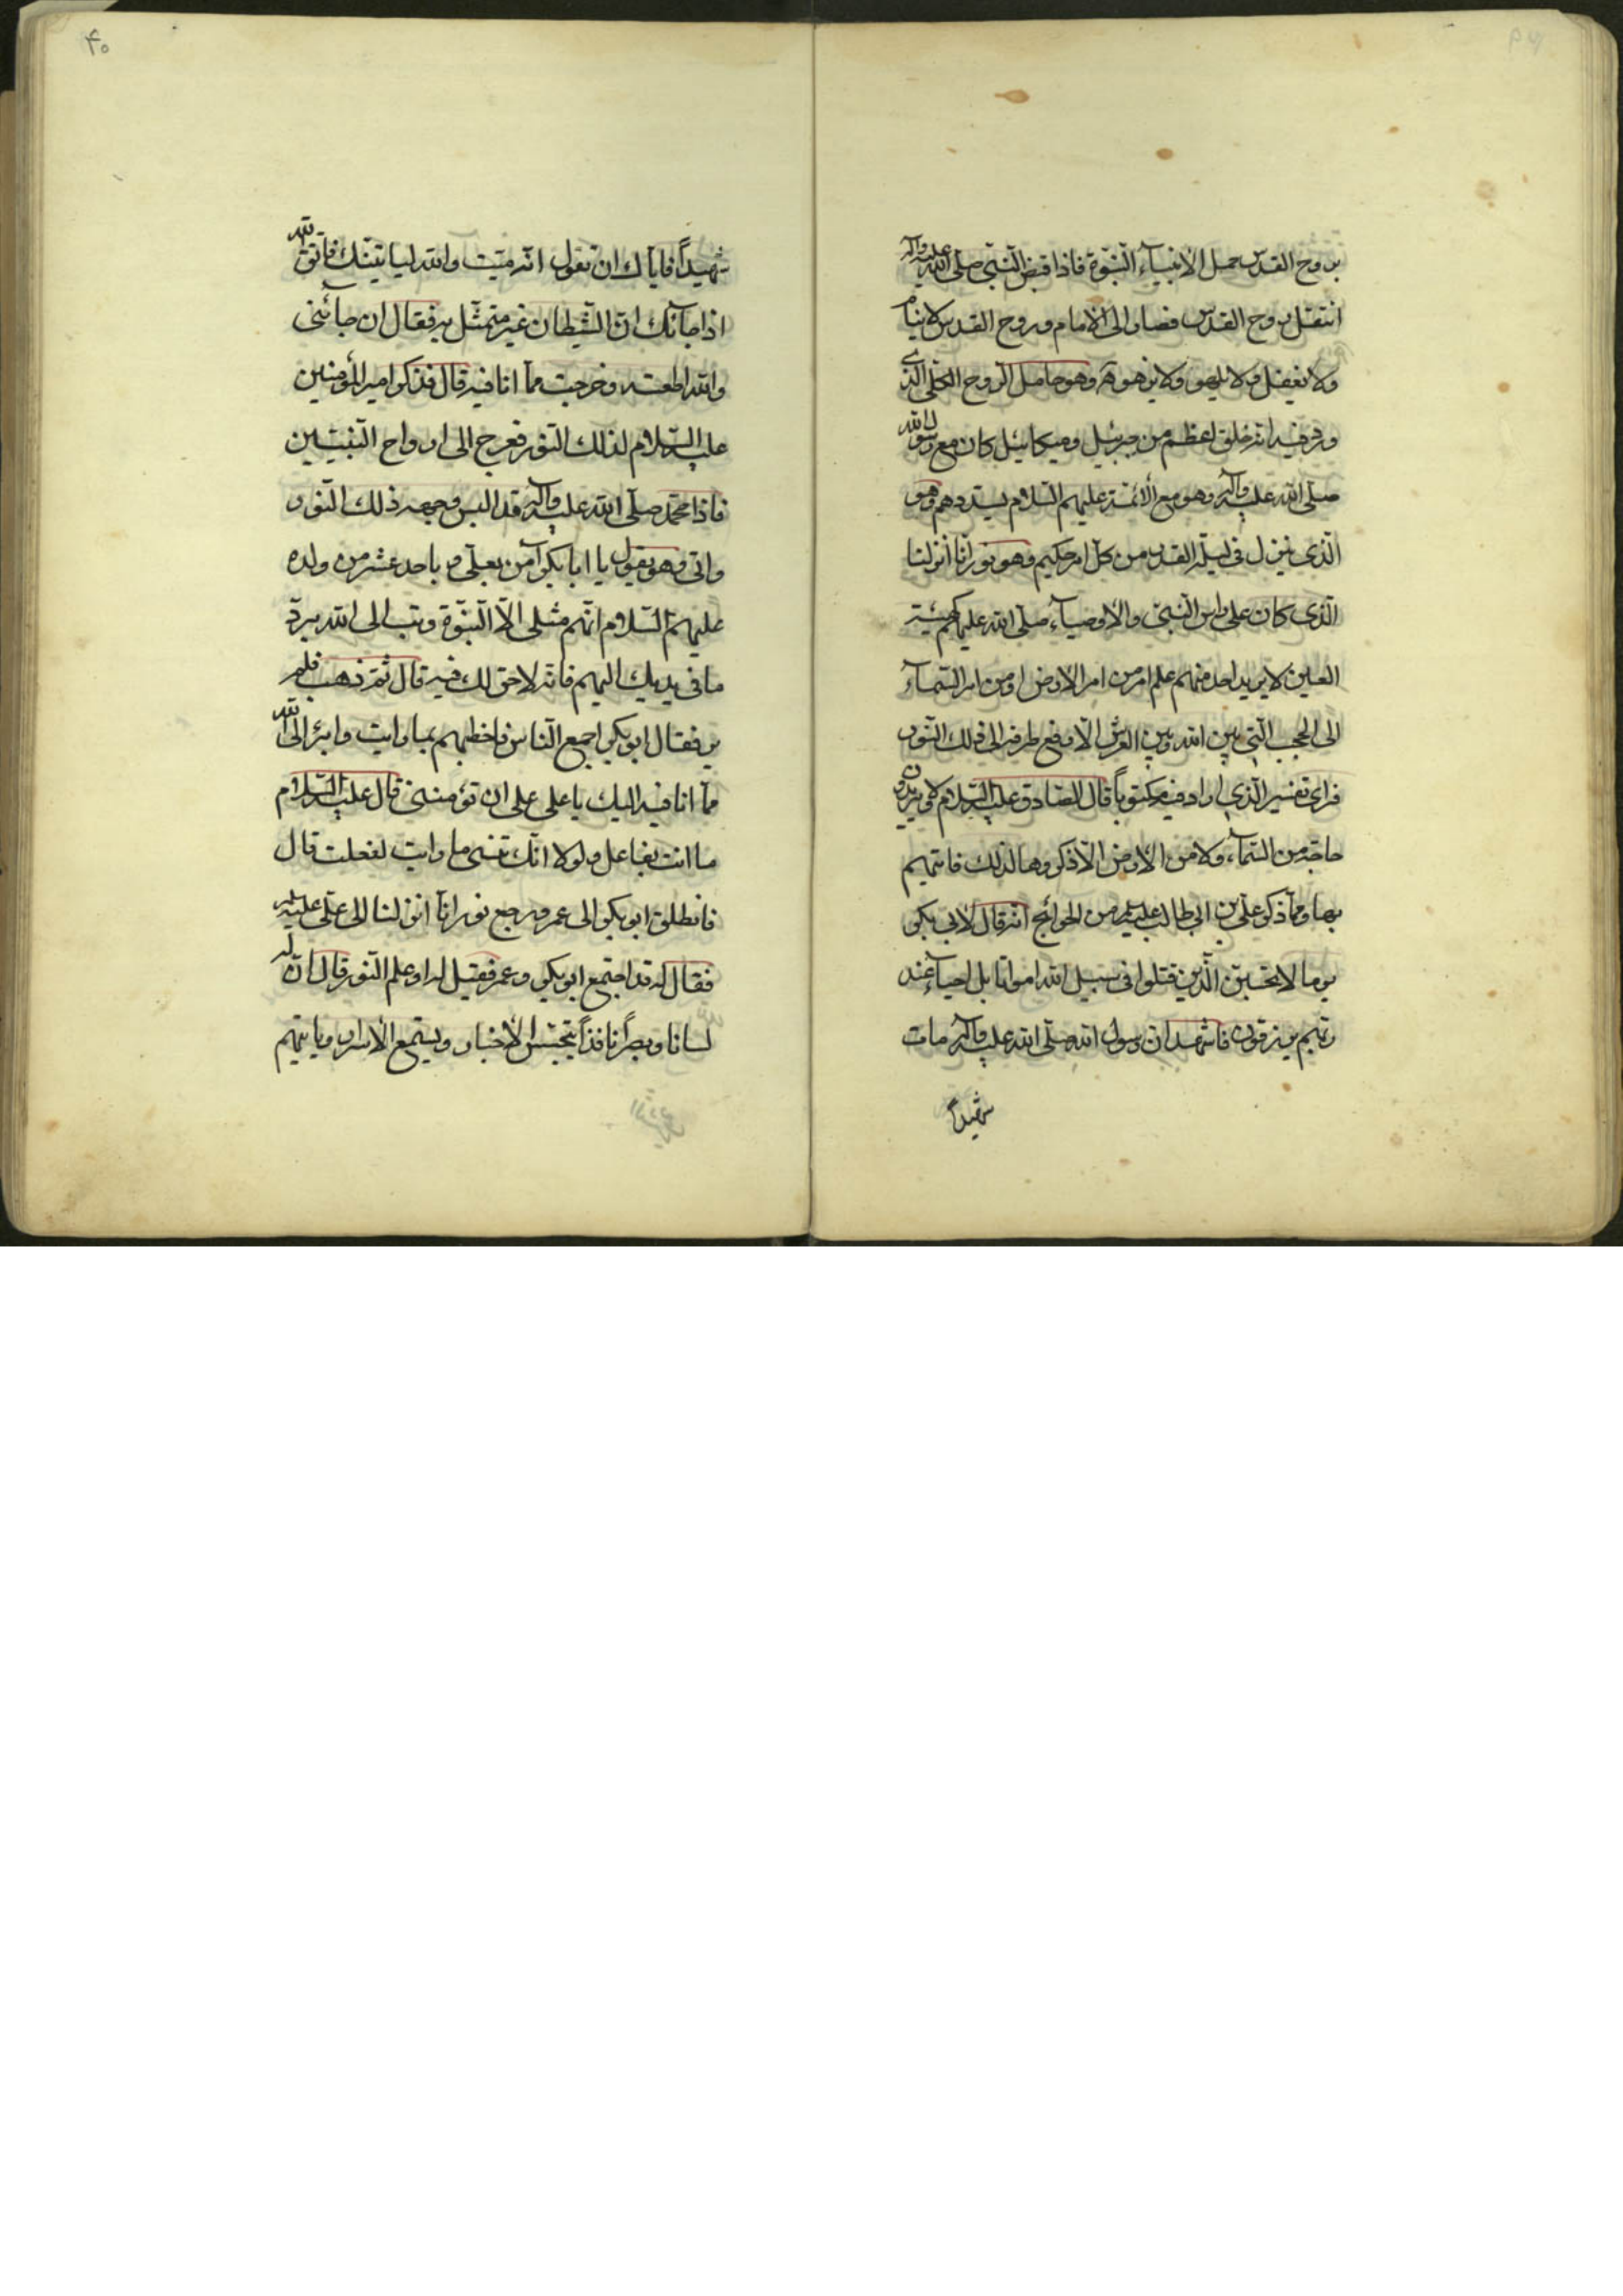 بروح القدس حمل الانبياء النّبوّة فاذا قبض النّبى صلّى الله عليه وآله
انتقل روح القدس فصار الى الامام وروح القدس لا ينام
ولا يغفل ولا يلهو ولا يزهو وهو حامل الرّوح الكلّى الّذى
ورد فيه انه خلق اعظم من جبرئيل وميكائيل كان مع رسول الله
صلّى الله عليه وآله وهو مع الأئمّة عليهم السّلام يسدّدهم وهو
الّذى ينزل فى ليلة القدر من كلّ امر حكيم وهو نور انّا انزلنا
الّذى كان على راس النّبىّ والاوصياء صلّى الله عليهم كهيئة
العين لا يريد احد منهم علم امر من امر الارض او من امر السّماء
الى الحجب الّتى بين الله وبين العرش الّا رفع طرفه الى ذلك النّور
فراى تفسير الّذى اراد فيه مكتوباً قال الصّادق عليه السّلام لا يريدون
حاجة من السّماء ولا من الارض الّا ذكروها لذلك فاتتهم
بها وممّا ذكر علىّ بن ابى طالب عليه السلام من الحوائج انه قال لابى بكر
يوما لا تحسبنّ الّذين قتلوا فى سبيل الله امواتا بل احياء عند
ربّهم يرزقون فاشهد انّ رسول الله صلّى الله عليه وآله مات
شهيداً
۴۰
شهيداً فايّاك ان تقول انّه ميّت والله لياتينّك فاتّق الله
اذا جآئك انّ الشّيطان غير متمثّل به فقال ان جآئنى
والله اطعته وخرجت ممّا انا فيه قال فذكر امير المؤمنين
عليه السّلام لذلك النّور فعرج الى ارواح النّبيّين
فاذا محمّد صلّى الله عليه وآله قد البس وجهه ذلك النّور
واتى وهو يقول يا ابا بكر آمن بعلىّ وباحد عشر من ولده
عليهم السّلام انّهم مثلى الّا النّبوّة وتب الى الله بردّ
ما فى يديك اليهم فانّه لا حقّ لك فيه قال ثمّ ذهب فلم
ير فقال ابو بكر اجمع النّاس فاخطبهم بما رايت وابرء الى الله
ممّا انا فيه اليك يا على على ان تؤمننى قال عليه السّلام
ما انت بفاعل ولولا انّك تنسى ما رايت لفعلت قال
فانطلق ابو بكر الى عمر ورجع نور انّا انزلنا الى علىّ عليه السلام
فقال له قد اجتمع ابو بكر وعمر فقيل له او علم النّور قال انّ له
لسانا وبصراً نافذاً يتجسّس الاخبار ويستمع الاسرار وياتيهم